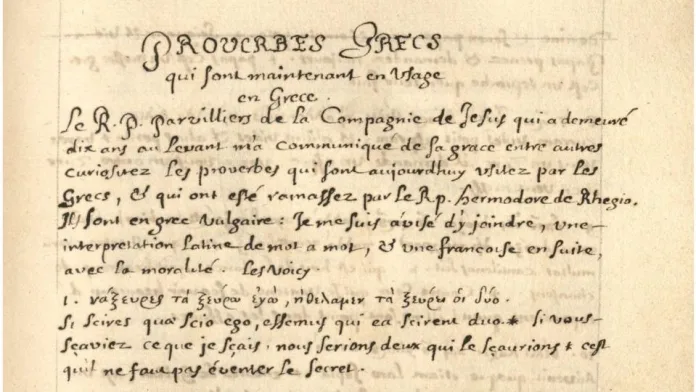 PROUERBES GRECS
qui sont maintenant en Usage
en Grece.
Le R. P. Parvilliers de la Compagnie de Jesus qui a demeuré
dix ans au Levant m'a communiqué de sa grace entre autres
curiositez Les proverbes qui sont aujourdhuy usitez par les
Grecs, & qui ont esté ramassez par le Rp. hermodore de Rhegio.
Ils sont en grec vulgaire: Je me suis avisé d'y joindre, une
interpretation Latine de mot a mot, & une francoise en suite,
avec la moralité. Les Voicy.
1. νάξευρες τὰ ξεύρω ἐγὼ, ἠθέλαμεν τὰ ξεύρει οἱ δύο.
Si scires quae scio ego, essemus qui ea scirent duo.* si vous
sçaviez ce que je sçais, nous serions deux qui le sçaurions * cest
qu'il ne faut pas éventer le secret.